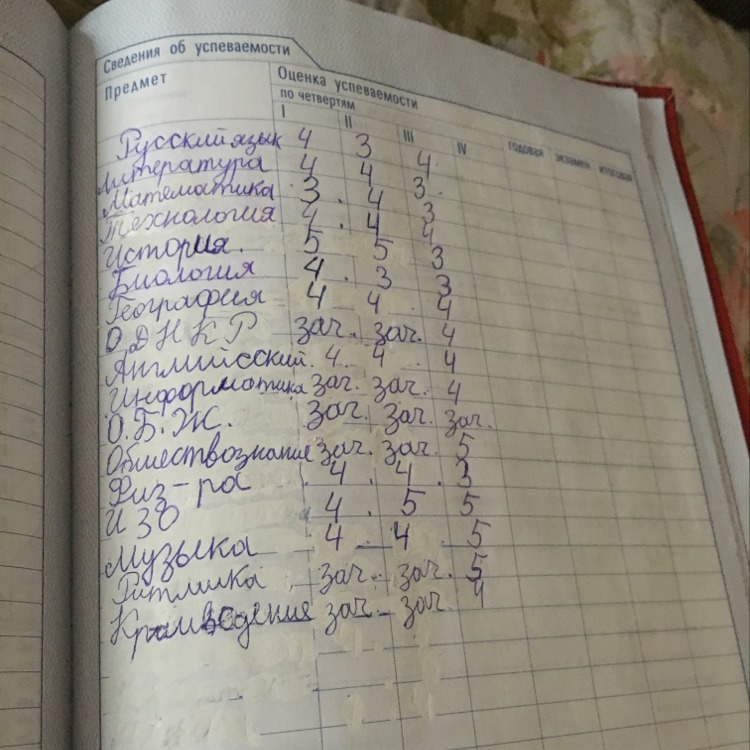 Сведения об успеваемости
Предмет Оценка успеваемости
по четвертям
I II III IV годовая экзамен итоговая
Русский язык 4 3 4
Литература 4 4 3
Математика 3 4 3
Технология 4 4 4
История. 5 5 3
Биология 4 3 3
География 4 4 4
О Д Н К Р зач. зач. 4
Английсский. 4 4 4
Информатика зач. зач. 4
О.Б.Ж. зач. зач. зач.
Обществознание зач. зач. 5
Физ-ра 4 4 3
ИЗО 4 5 5
Музыка 4 4 5
Ритмика зач. зач. 5
зач. зач. 4